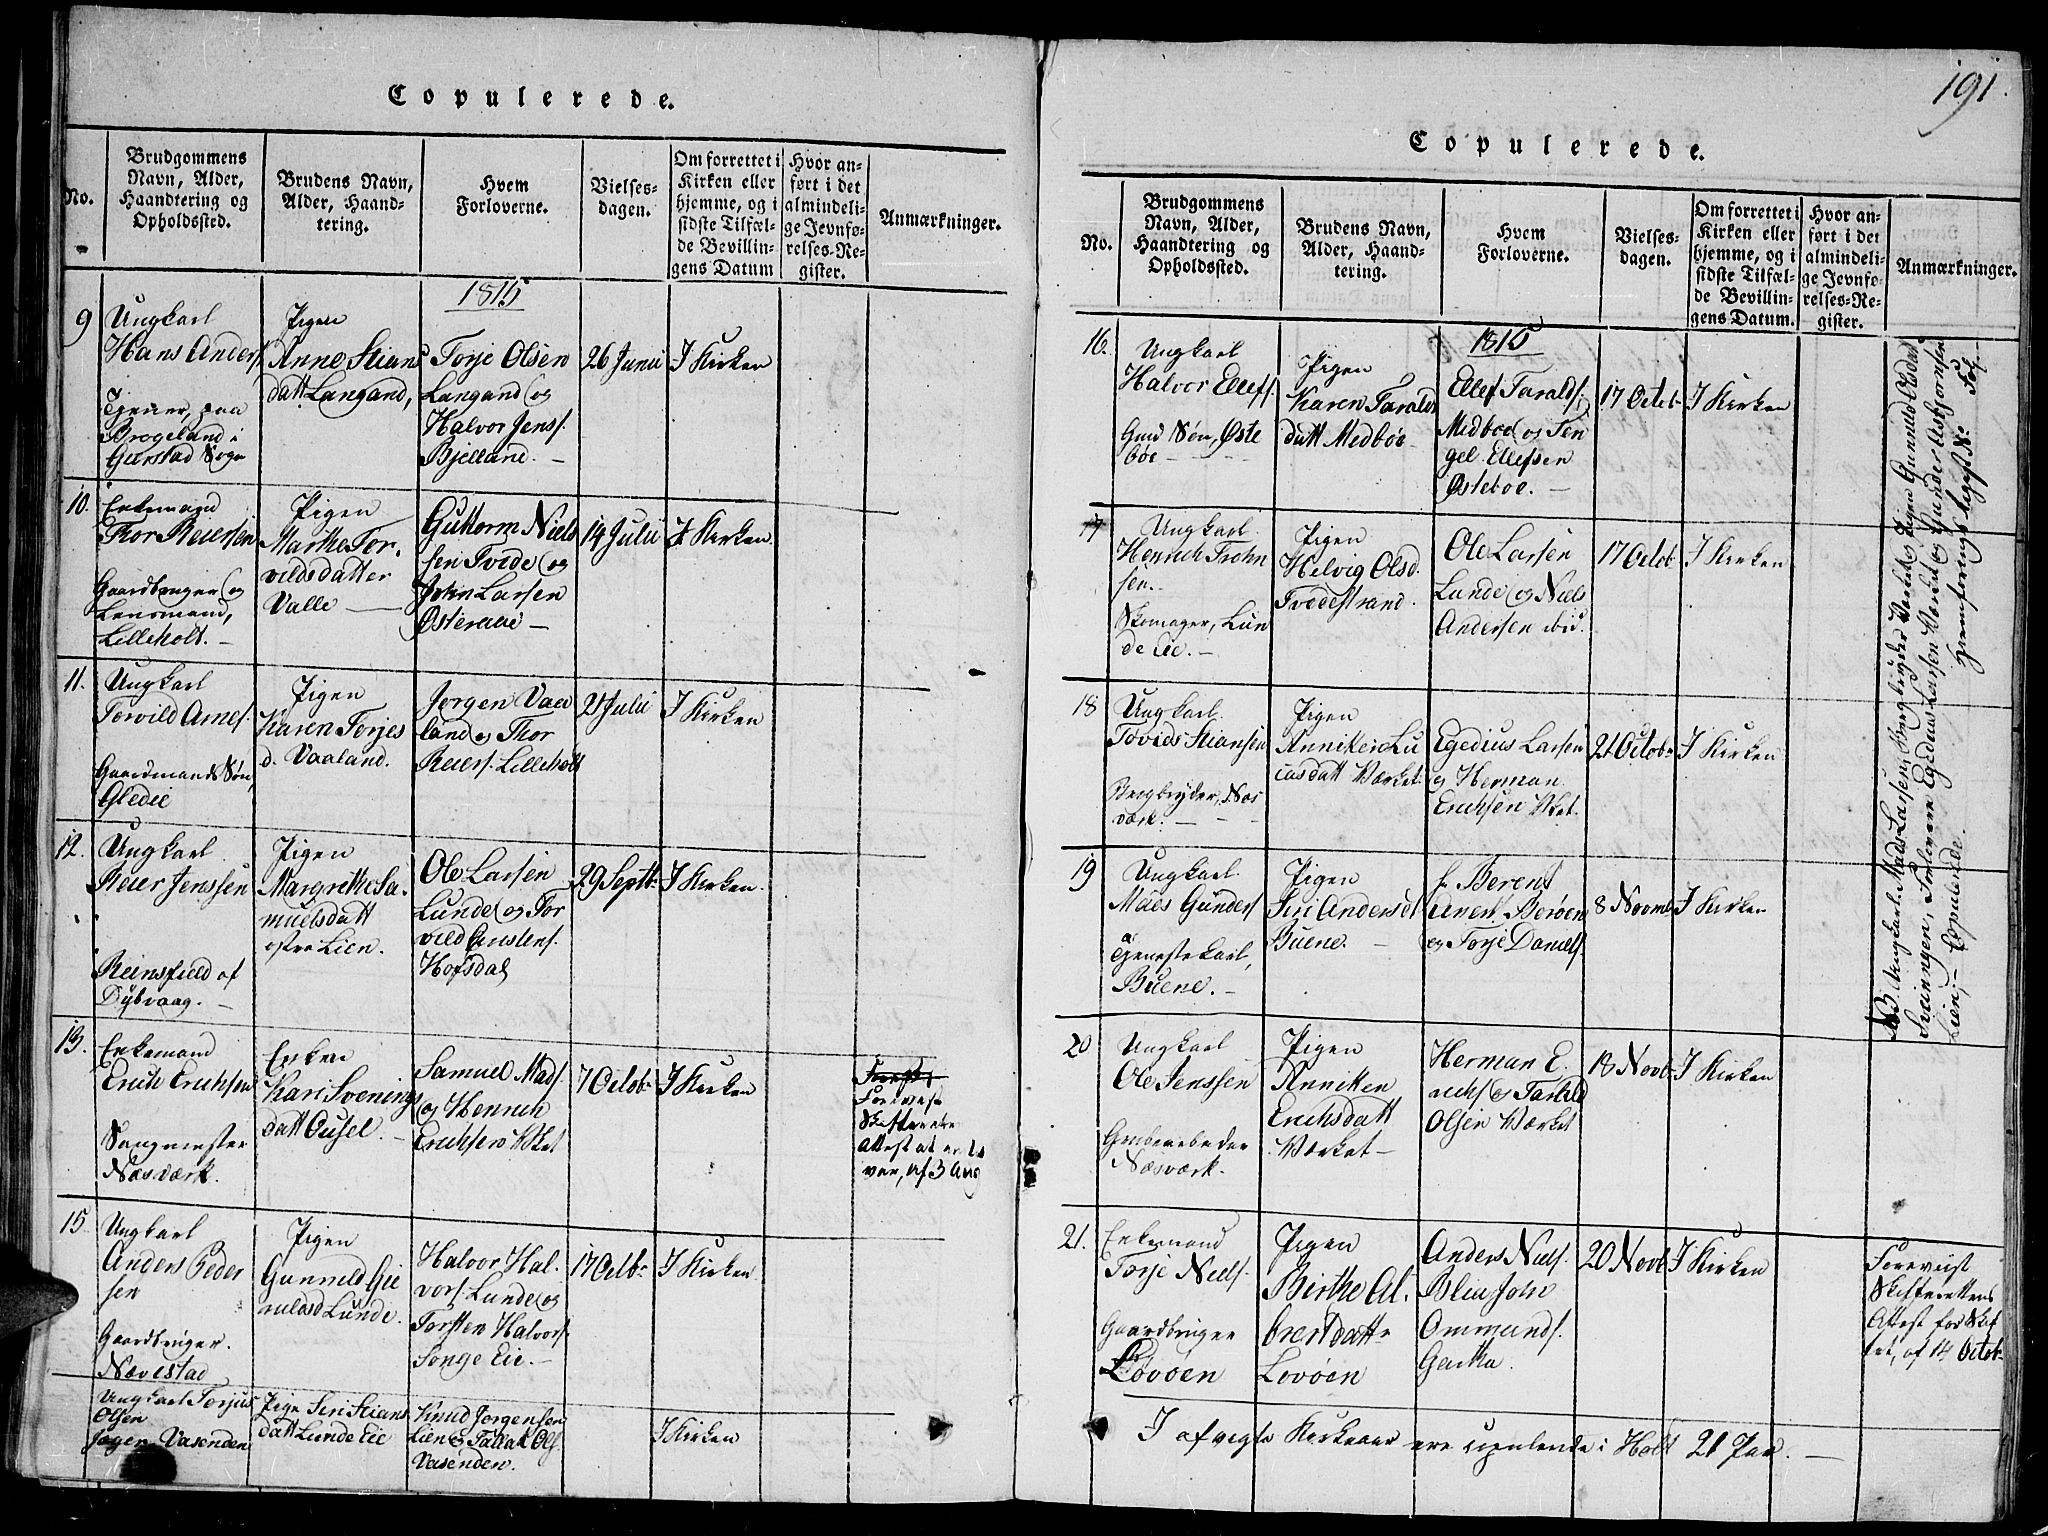 Copulerede.
No.
Brudgommens
Navn, Alder,
Haandtering og
Opholdssted.
Brudens Navn,
Alder, Haand-
tering.
Hvem
Forloverne.
Vielses-
dagen.
Om forrettet i
Kirken eller
hjemme, og i
sidste Tilfæl-
de Bevillin-
gens Datum
Hvor an-
ført i det
almindeli-
ge Jevnfø-
relses-Re-
gister.
Anmærkninger.
1815
9
Ungkarl
Hans Anders.
Tjener, paa
Brogeland i
Gierstad Sogn
Pigen
Anne Stians
datt Langand,
Torje Olsen
Langand og
Halvor Jens.
Bjelland. —
26 Junii
I Kirken
10.
Enkemand
Thor Reiersen
Gaardbruger og
Lensmand,
Lilleholt. —
Pigen
Marthe Tor-
vildsdatter
Valle —
Guttorm Niels
sen Tvede og
John Larsen
Østeraae —
14 Julii
I Kirken.
11.
Ungkarl
Torvild Arnes.
Gaardmands Søn,
Gledie
Pigen
Karen Torjes
d. Vaaland.
Jørgen Vaa
land og Thor
Reiers. Lilleholt
21 Julii
I Kirken
12.
Ungkarl.
Reier Jenssen
Reinsfield af
Dybvaag. —
Pigen
Margrethe Sa-
muelsdatt
Lien.
Ole Larsen
Lunde og Tor
vild Christens.
Hofsdal
29 Septb.
I Kirken.
13.
Enkemand
Erich Erichsen
Næsværk.
Enken
Kari Svenings
datt Ousel. —
Samuel Mads.
og Henrich
Erichsen Vket
7 Octob.
I Kirken
Forevist
Skifterette
Attest at
af 3 Aug
15.
Ungkarl
Anders Peder
sen
Gaardbruger.
Nævestad
Pigen
Gunnild Gie
rulfsd Lunde.
Halvor Hal-
vors. Lunde og
Torsten Halvors.
Songe Eie. —
17 Octb.
I Kirken
Ungkarl Torjus
Olsen
Vasenden
Pige Siri Stians
datt Lunde Eie
Knud Jorgensen
Lien og Tallak Ols.
Vasenden.
I Kirken
191.
Copulerede.
No.
Brudgommens
Navn, Alder,
Haandtering og
Opholdssted.
Brudens Navn,
Alder, Haand-
tering.
Hvem
Forloverne.
Vielses-
dagen.
Om forrettet i
Kirken eller
hjemme, og i
sidste Tilfæl-
de Bevillin-
gens Datum.
Hvor an-
ført i det
almindeli-
ge Jevnfø-
relses-Re-
gister.
Anmærkninger.
1815
16.
Ungkarl
Halvor Ellefs.
Gmd Søn, Øste
böe
Pigen
Karen Taralds
datt Medböe
Ellef Taralds.
Medboe og Ten
gel Ellefsen
Østeboe. —
17 Octob
I Kirken
17
Ungkarl.
Henrich Trohn
sen.
Skomager, Lun
de Eie. —
Pigen
Helvig Olsd.
Tvedestrand.
Ole Larsen
Lunde og Niels
Andersen ibid.
17 Octob
I Kirken
18
Ungkarl.
Tovids Stiansen
Bergbryder, Næs
værk. —
Pigen
Anniken Lu
casdatt Værket
Egedius Larsen
og Herman
Erichsen Vket.
21 Octob.
I Kirken
19
Ungkarl.
Mads Gunders.
Tjenestekarl,
Buene. —
Pigen
Siri Andersd
Buene. —
Berent
Anders. Boröen
og Torje Daniels.
8 Novmb
I Kirken
20
Ungkarl
Ole Jenssen
Grubearbeider
Næsværk.
Pigen
Anniken
Erichsdatt
Værket —
Herman E.
richs. og Tarald
Olsen Værket
18 Novb.
I Kirken
21.
Enkemand
Torje Niels.
Gaardbruger
Lövöen
Pigen
Birthe Al.
bretdatt
Lovöen
Anders Niels.
Blien John
Ommunds.
Gartha.
20 Novb
I Kirken
Foreviist
Skifterettens
Attest for Skif
tet, af 14 Octob.
I afvigte Kirkeaar ere copulerede i Holt 21 Par. —
NB. Ungkarl Mads Larsen, Bergbryder Værket og Pigen Gunnild Olsdat
Sveinngen, Forlovere Egedius Larsen Værket og Gunder Asbjornsen
Lien, — Copulerede.